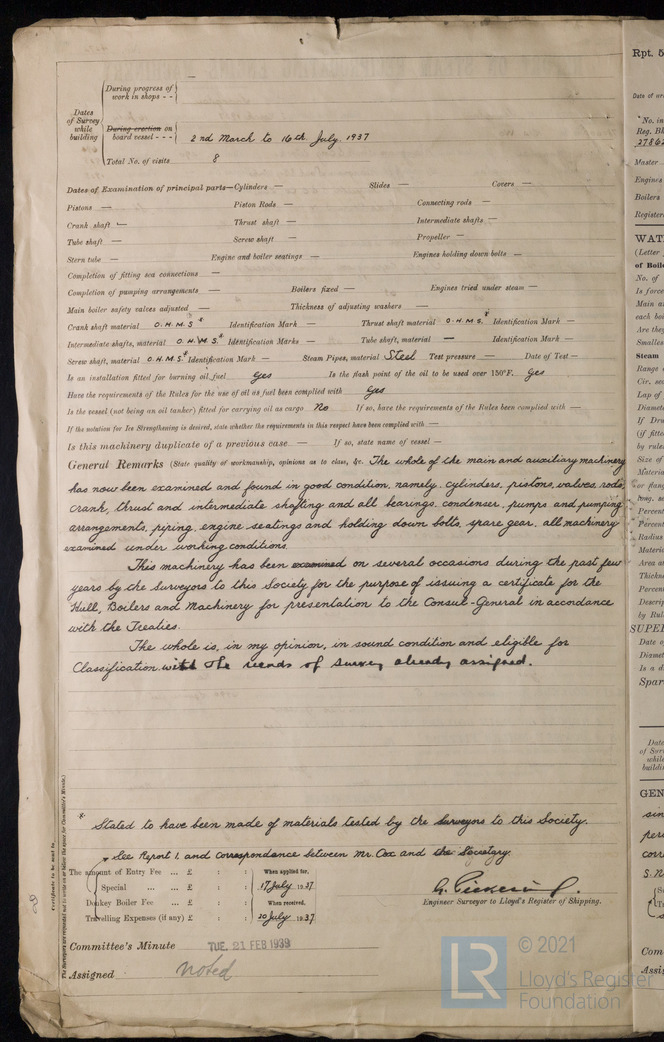 During progress of
work in shops - -
—
Dates
of Survey
while
building
During erection on
board vessel - - -
2nd March to 16th July 1937
Total No. of visits 8
Dates of Examination of principal parts—Cylinders — Slides — Covers —
Pistons — Piston Rods — Connecting rods —
Crank shaft — Thrust shaft — Intermediate shafts —
Tube shaft — Screw shaft — Propeller —
Stern tube — Engine and boiler seatings — Engines holding down bolts —
Completion of fitting sea connections —
Completion of pumping arrangements — Boilers fixed — Engines tried under steam —
Main boiler safety valves adjusted — Thickness of adjusting washers —
Crank shaft material O.H.M.S* Identification Mark — Thrust shaft material O.H.M.S.* Identification Mark —
Intermediate shafts, material O.H.M.S* Identification Marks — Tube shaft, material — Identification Mark —
Screw shaft, material O.H.M.S* Identification Mark — Steam Pipes, material Steel Test pressure — Date of Test —
Is an installation fitted for burning oil fuel Yes Is the flash point of the oil to be used over 150°F. Yes
Have the requirements of the Rules for the use of oil as fuel been complied with Yes
Is the vessel (not being an oil tanker) fitted for carrying oil as cargo No If so, have the requirements of the Rules been complied with —
If the notation for Ice Strengthening is desired, state whether the requirements in this respect have been complied with —
Is this machinery duplicate of a previous case — If so, state name of vessel —
General Remarks (State quality of workmanship, opinions as to class, &c. The whole of the main and auxiliary machinery
has now been examined and found in good condition, namely. cylinders, pistons, valves, rods,
crank, thrust and intermediate shafting and all bearings, condenser, pumps and pumping
arrangements, piping, engine seatings and holding down bolts, spare gear, all machinery
examined under working conditions.
This machinery has been examined on several occasions during the past few
years by the Surveyors to this Society for the purpose of issuing a certificate for the
Hull, Boilers and Machinery for presentation to the Consul-General in accordance
with the Treaties.
The whole is, in my opinion, in sound condition and eligible for
Classification with the records of survey already assigned.
* Stated to have been made of materials tested by the Surveyors to this Society.
See Report 1, and correspondence between Mr. Cox and the Secretary.
The amount of Entry Fee ... £ : : When applied for,
Special ... ... £ : : 17 July 1937
Donkey Boiler Fee ... £ : : When received,
Travelling Expenses (if any) £ : : 20 July 1937
Engineer Surveyor to Lloyd's Register of Shipping.
Committee's Minute TUE. 21 FEB 1939
Assigned noted
Certificate to be sent to
The Surveyors are requested not to write on or below the space for Committee's Minute.
Rpt. 5
No. in
Reg. Bk
Master
Engines
Boilers
WAT
(Letter
of Boil
No. of
Main a
each boi
Are they
Smalles
Steam
Range
Cir. sec
Lap of
by rule
Size of
Percent
Radius
Area a
by Rul
SUPER
Date o
Is a d
Spar
Date
of Surv
while
buildi
GEN
Com
Assig
© 2021
Lloyd's Register
Foundation
LR